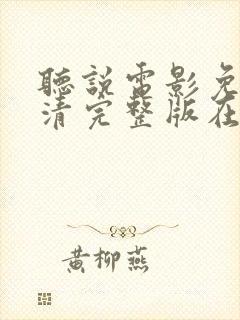 聽說電影免
清完整版在
黃柳燕